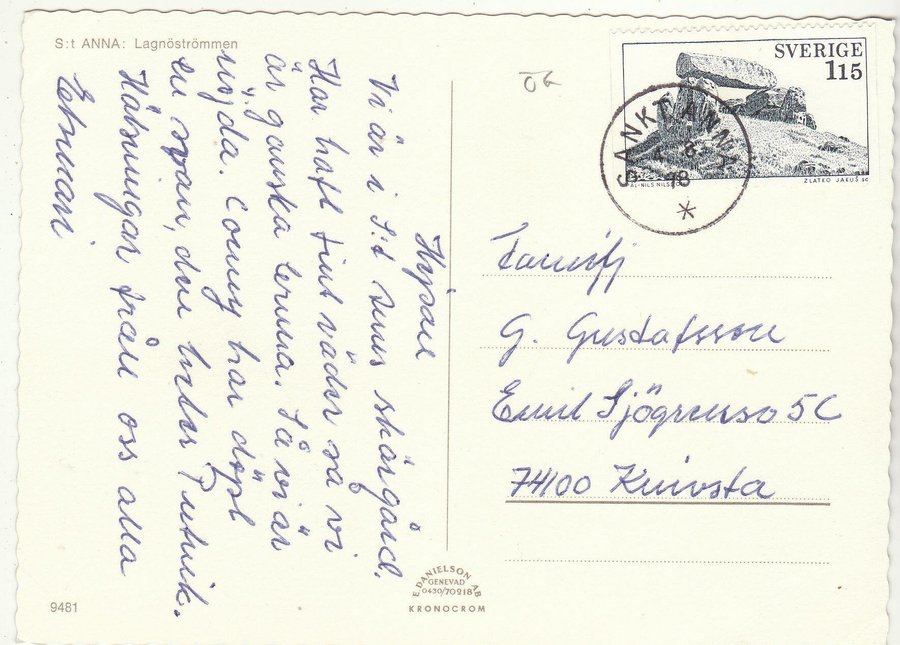 S:t ANNA: Lagnöströmmen
Hejsan
Vi är i S:t Annas skärgård.
Har haft fint väder så vi
är ganska bruna. Så vi är
nöjda. Conny har döpt
en spain, den heter Putnik.
Hälsningar från oss alla
06
SVERIGE
115
ZLATKO JAKUŠ SC
SANKT ANNA
8
78
Familj
G. Gustafsson
Emil Sjögrenso 5C
74100 Knivsta
E. DANIELSON AB
GENEVAD
0430/70218
KRONOCROM
9481